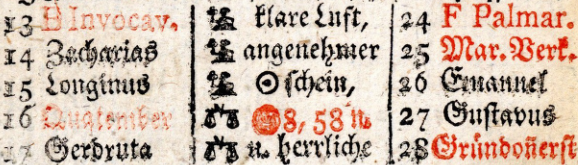 13 B Invocav. klare Luft, 24 F Palmar.
14 Zacharias angenehmer 25 Mar. Verk.
15 Longinus ☉ schein, 26 Emanuel
16 Quatember 8, 58 n. 27 Gustavus
17 Gerdruta u. herrliche 28 Gründonerst